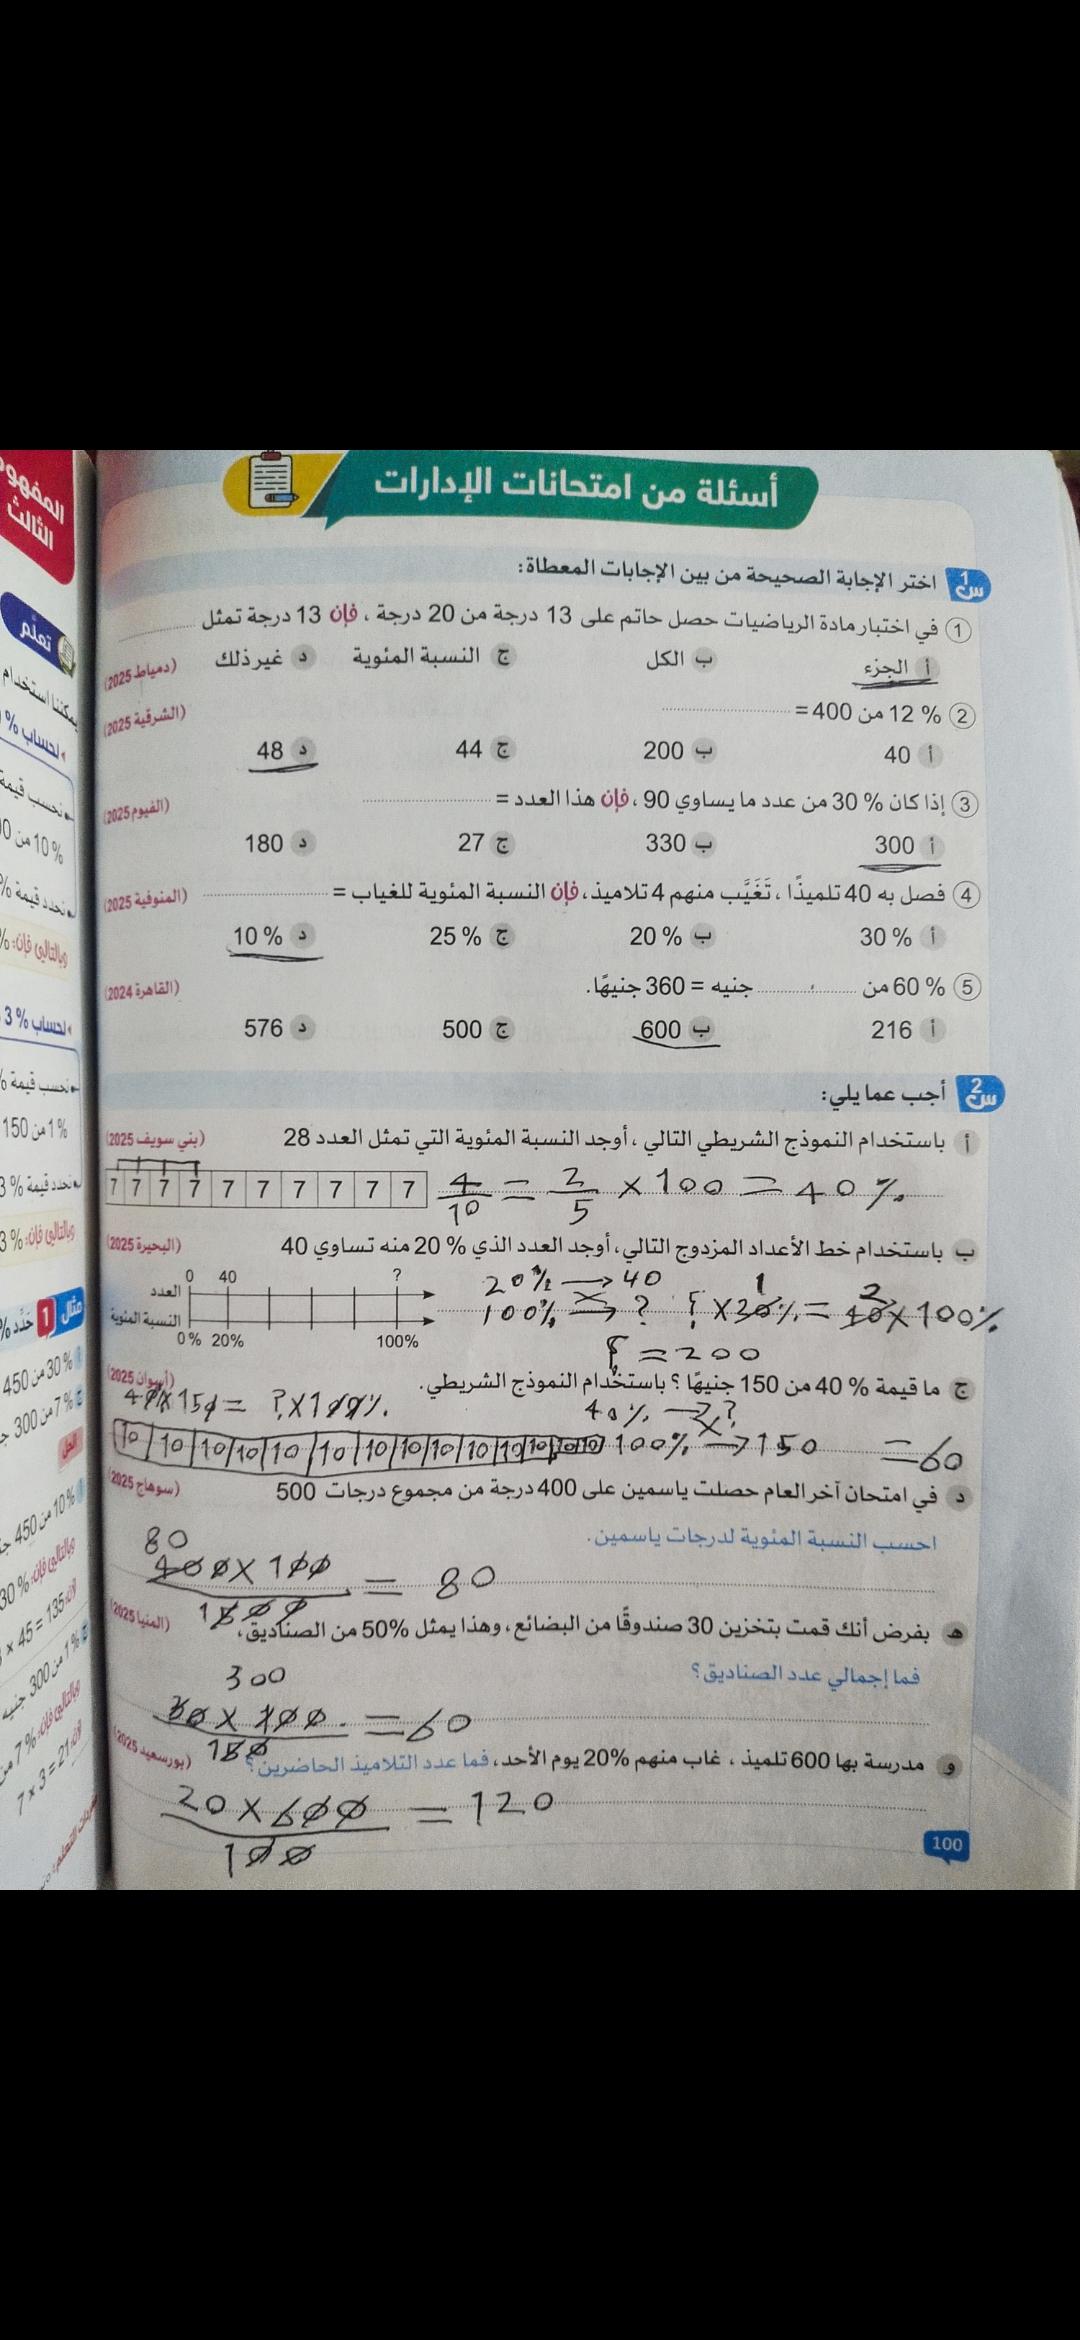 أسئلة من امتحانات الإدارات
س1 اختر الإجابة الصحيحة من بين الإجابات المعطاة:
1 في اختبار مادة الرياضيات حصل حاتم على 13 درجة من 20 درجة ، فإن 13 درجة تمثل
أ الجزء ب الكل ج النسبة المئوية د غير ذلك (دمياط 2025)
2 12 % من 400 = (الشرقية 2025)
أ 40 ب 200 ج 44 د 48
3 إذا كان % 30 من عدد ما يساوي 90 ، فإن هذا العدد = (الفيوم 2025)
أ 300 ب 330 ج 27 د 180
4 فصل به 40 تلميذًا ، تَغَيَّب منهم 4 تلاميذ، فإن النسبة المئوية للغياب = (المنوفية 2025)
أ 30 % ب 20 % ج 25 % د 10 %
5 60 % من جنيه = 360 جنيهًا. (القاهرة 2024)
أ 216 ب 600 ج 500 د 576
س2 أجب عما يلي:
أ باستخدام النموذج الشريطي التالي ، أوجد النسبة المئوية التي تمثل العدد 28 (بني سويف 2025)
7 7 7 7 7 7 7 7 7 7 4/10 = 2/5 × 100 = 40 %
ب باستخدام خط الأعداد المزدوج التالي، أوجد العدد الذي % 20 منه تساوي 40 (البحيرة 2025)
0 40 ? 20% → 40
العدد
100% → ? ? × 20% = 40 × 100%
النسبة المئوية
0 % 20% 100%
? = 200
ج ما قيمة % 40 من 150 جنيهًا ؟ باستخدام النموذج الشريطي. (أسوان 2025)
40 × 150 = ? × 100%. 40 % → ?
10 10 10 10 10 10 10 10 10 10 10 10 10 10 100% → 150 = 60
د في امتحان آخر العام حصلت ياسمين على 400 درجة من مجموع درجات 500 (سوهاج 2025)
احسب النسبة المئوية لدرجات ياسمين.
80
400 × 100 = 80
1 500
هـ بفرض أنك قمت بتخزين 30 صندوقًا من البضائع، وهذا يمثل %50 من الصناديق، (المنيا 2025)
فما إجمالي عدد الصناديق؟
300
30 × 100 = 60
1 50
و مدرسة بها 600 تلميذ ، غاب منهم %20 يوم الأحد، فما عدد التلاميذ الحاضرين؟ (بورسعيد 2025)
20 × 600 = 120
100
100
المفهوم
الثالث
تعلم
يمكننا استخدام
لحساب %
نحسب قيمة
10 % من
نحدد قيمة %
وبالتالي فإن: %
لحساب % 3
نحسب قيمة
1 % من 150
نحدد قيمة % 3
وبالتالي فإن: % 3
مثال 1 حَدِّد %
30 % من 450
7 % من 300
الحل
10 % من 450
وبالتالي فإن: 30 %
× 45 = 135
1 % من 300 جنيه
وبالتالي فإن: 7 % من
7 x 3 = 21